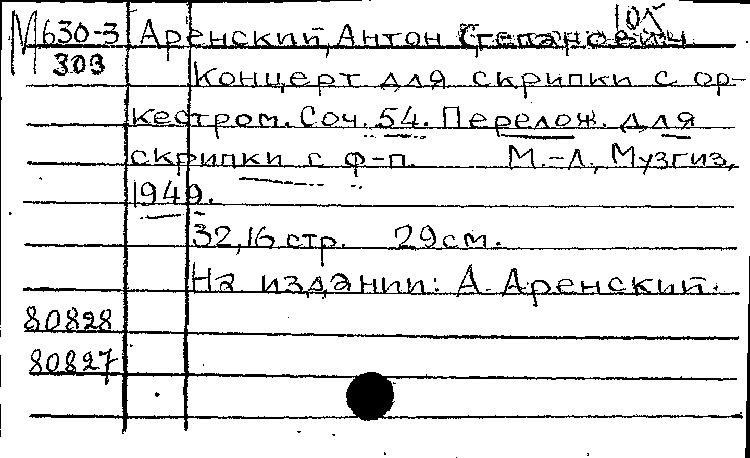 105
М630-3 Аренский, Антон Степанович
303 Концерт для скрипки с ор-
кестром. Соч. 54. Перелож. для
скрипки с ф-п. М.-Л., Музгиз,
1949.
32,16 стр. 29см.
На издании: А. Аренский.
80828
80827